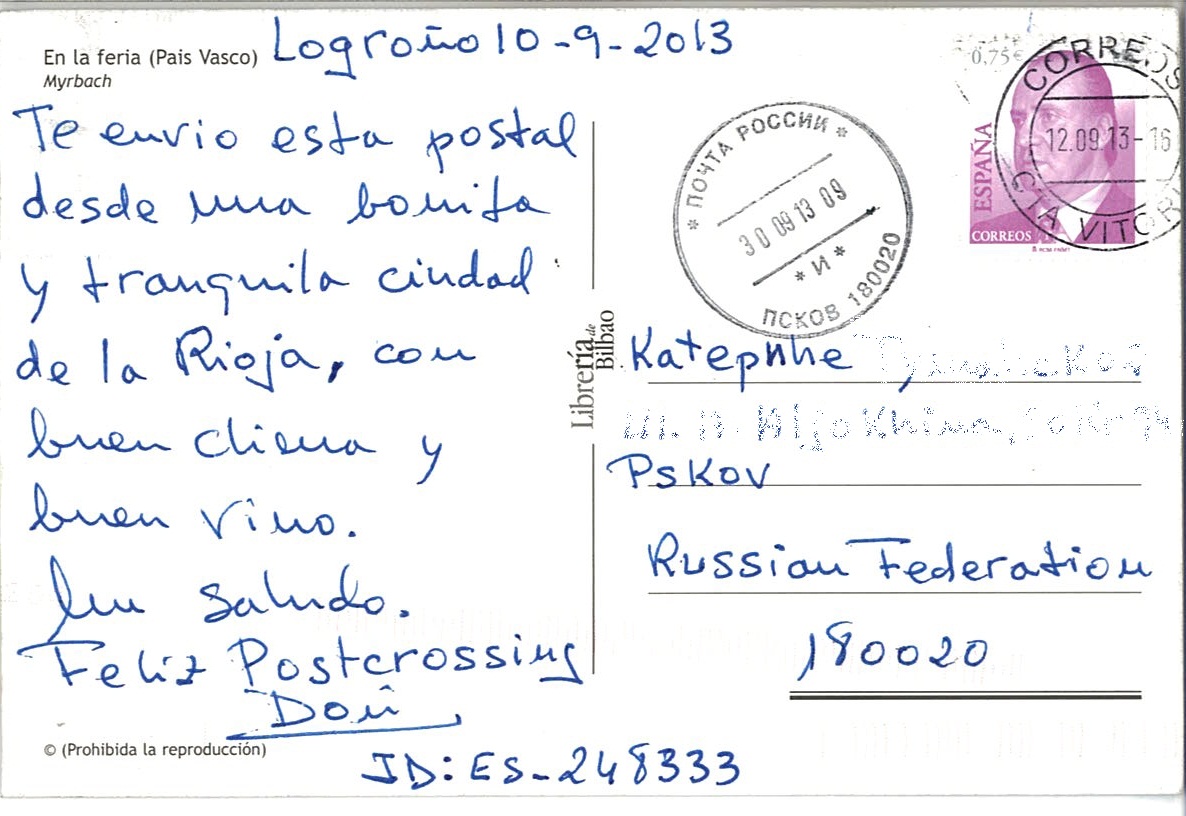 En la feria (Pais Vasco)
Myrbach
Logroño 10-9-2013
Te envio esta postal
desde una bonita
y tranquila ciudad
de la Rioja, con
buen clima y
buen vino.
Un saludo.
Feliz Postcrossing
© (Prohibida la reproducción)
ID: ES-248333
Librería de
Bilbao
* ПОЧТА РОССИИ *
30 09 13 09
* И *
ПСКОВ 180020
0,75€
ESPAÑA
CORREOS
CORREOS
12.09.13-16
CTA VITORI
Катерине
Pskov
Russian Federation
180020